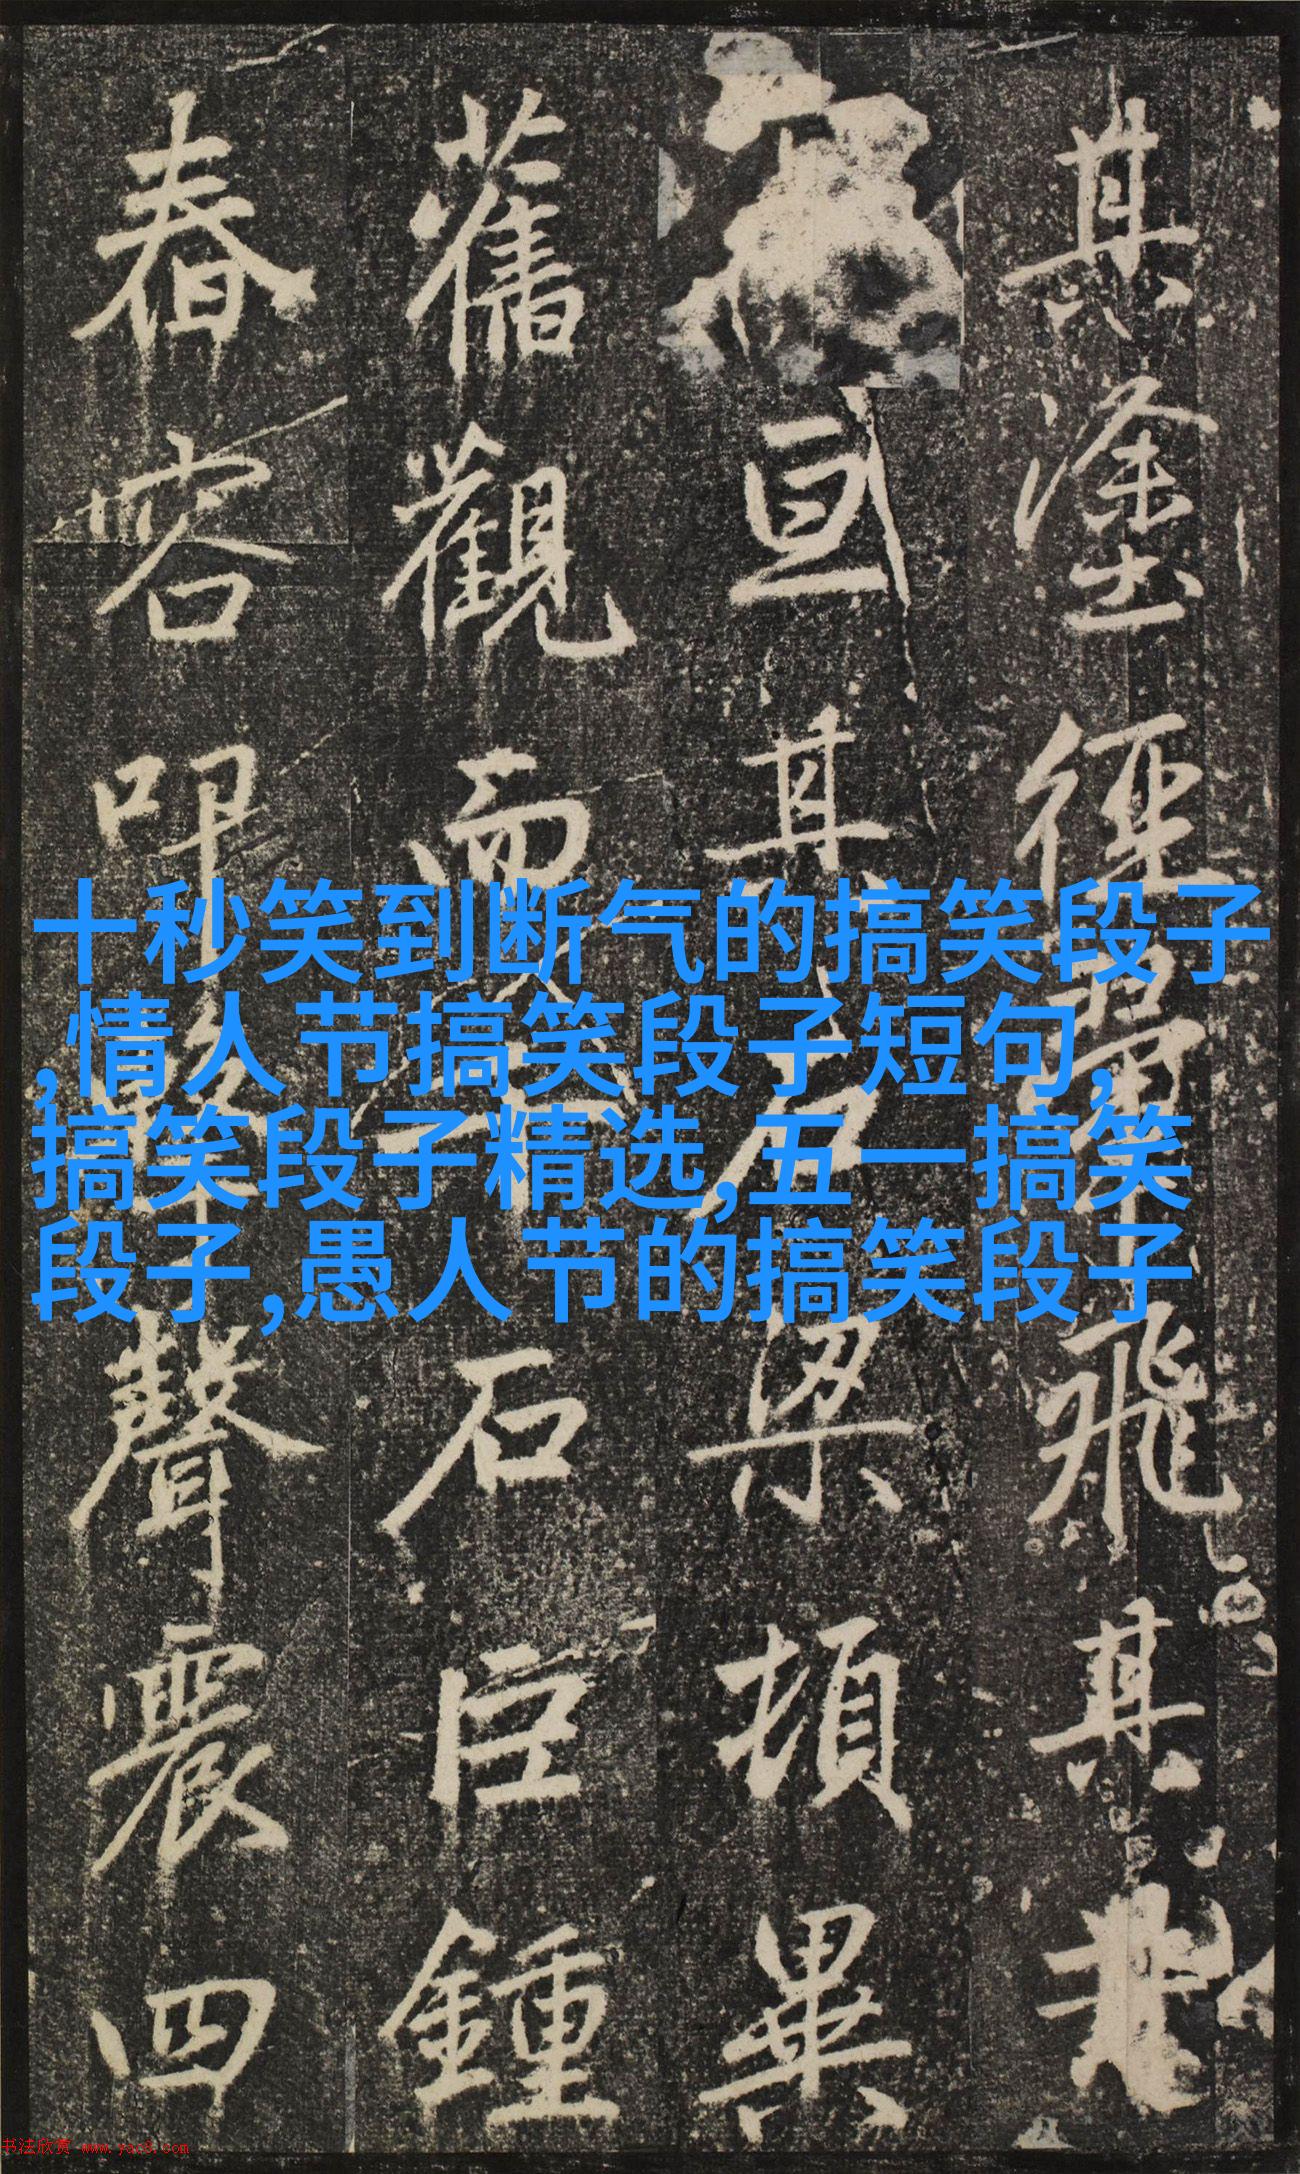 其塗徑翬飛其
亘其石梁頓異
舊觀而文石巨鍾
春容叩擊聲震四
十秒笑到断气的搞笑段子
,情人节搞笑段子短句,
搞笑段子精选,五一搞笑
段子,愚人节的搞笑段子
书法欣赏 www.yac8.com